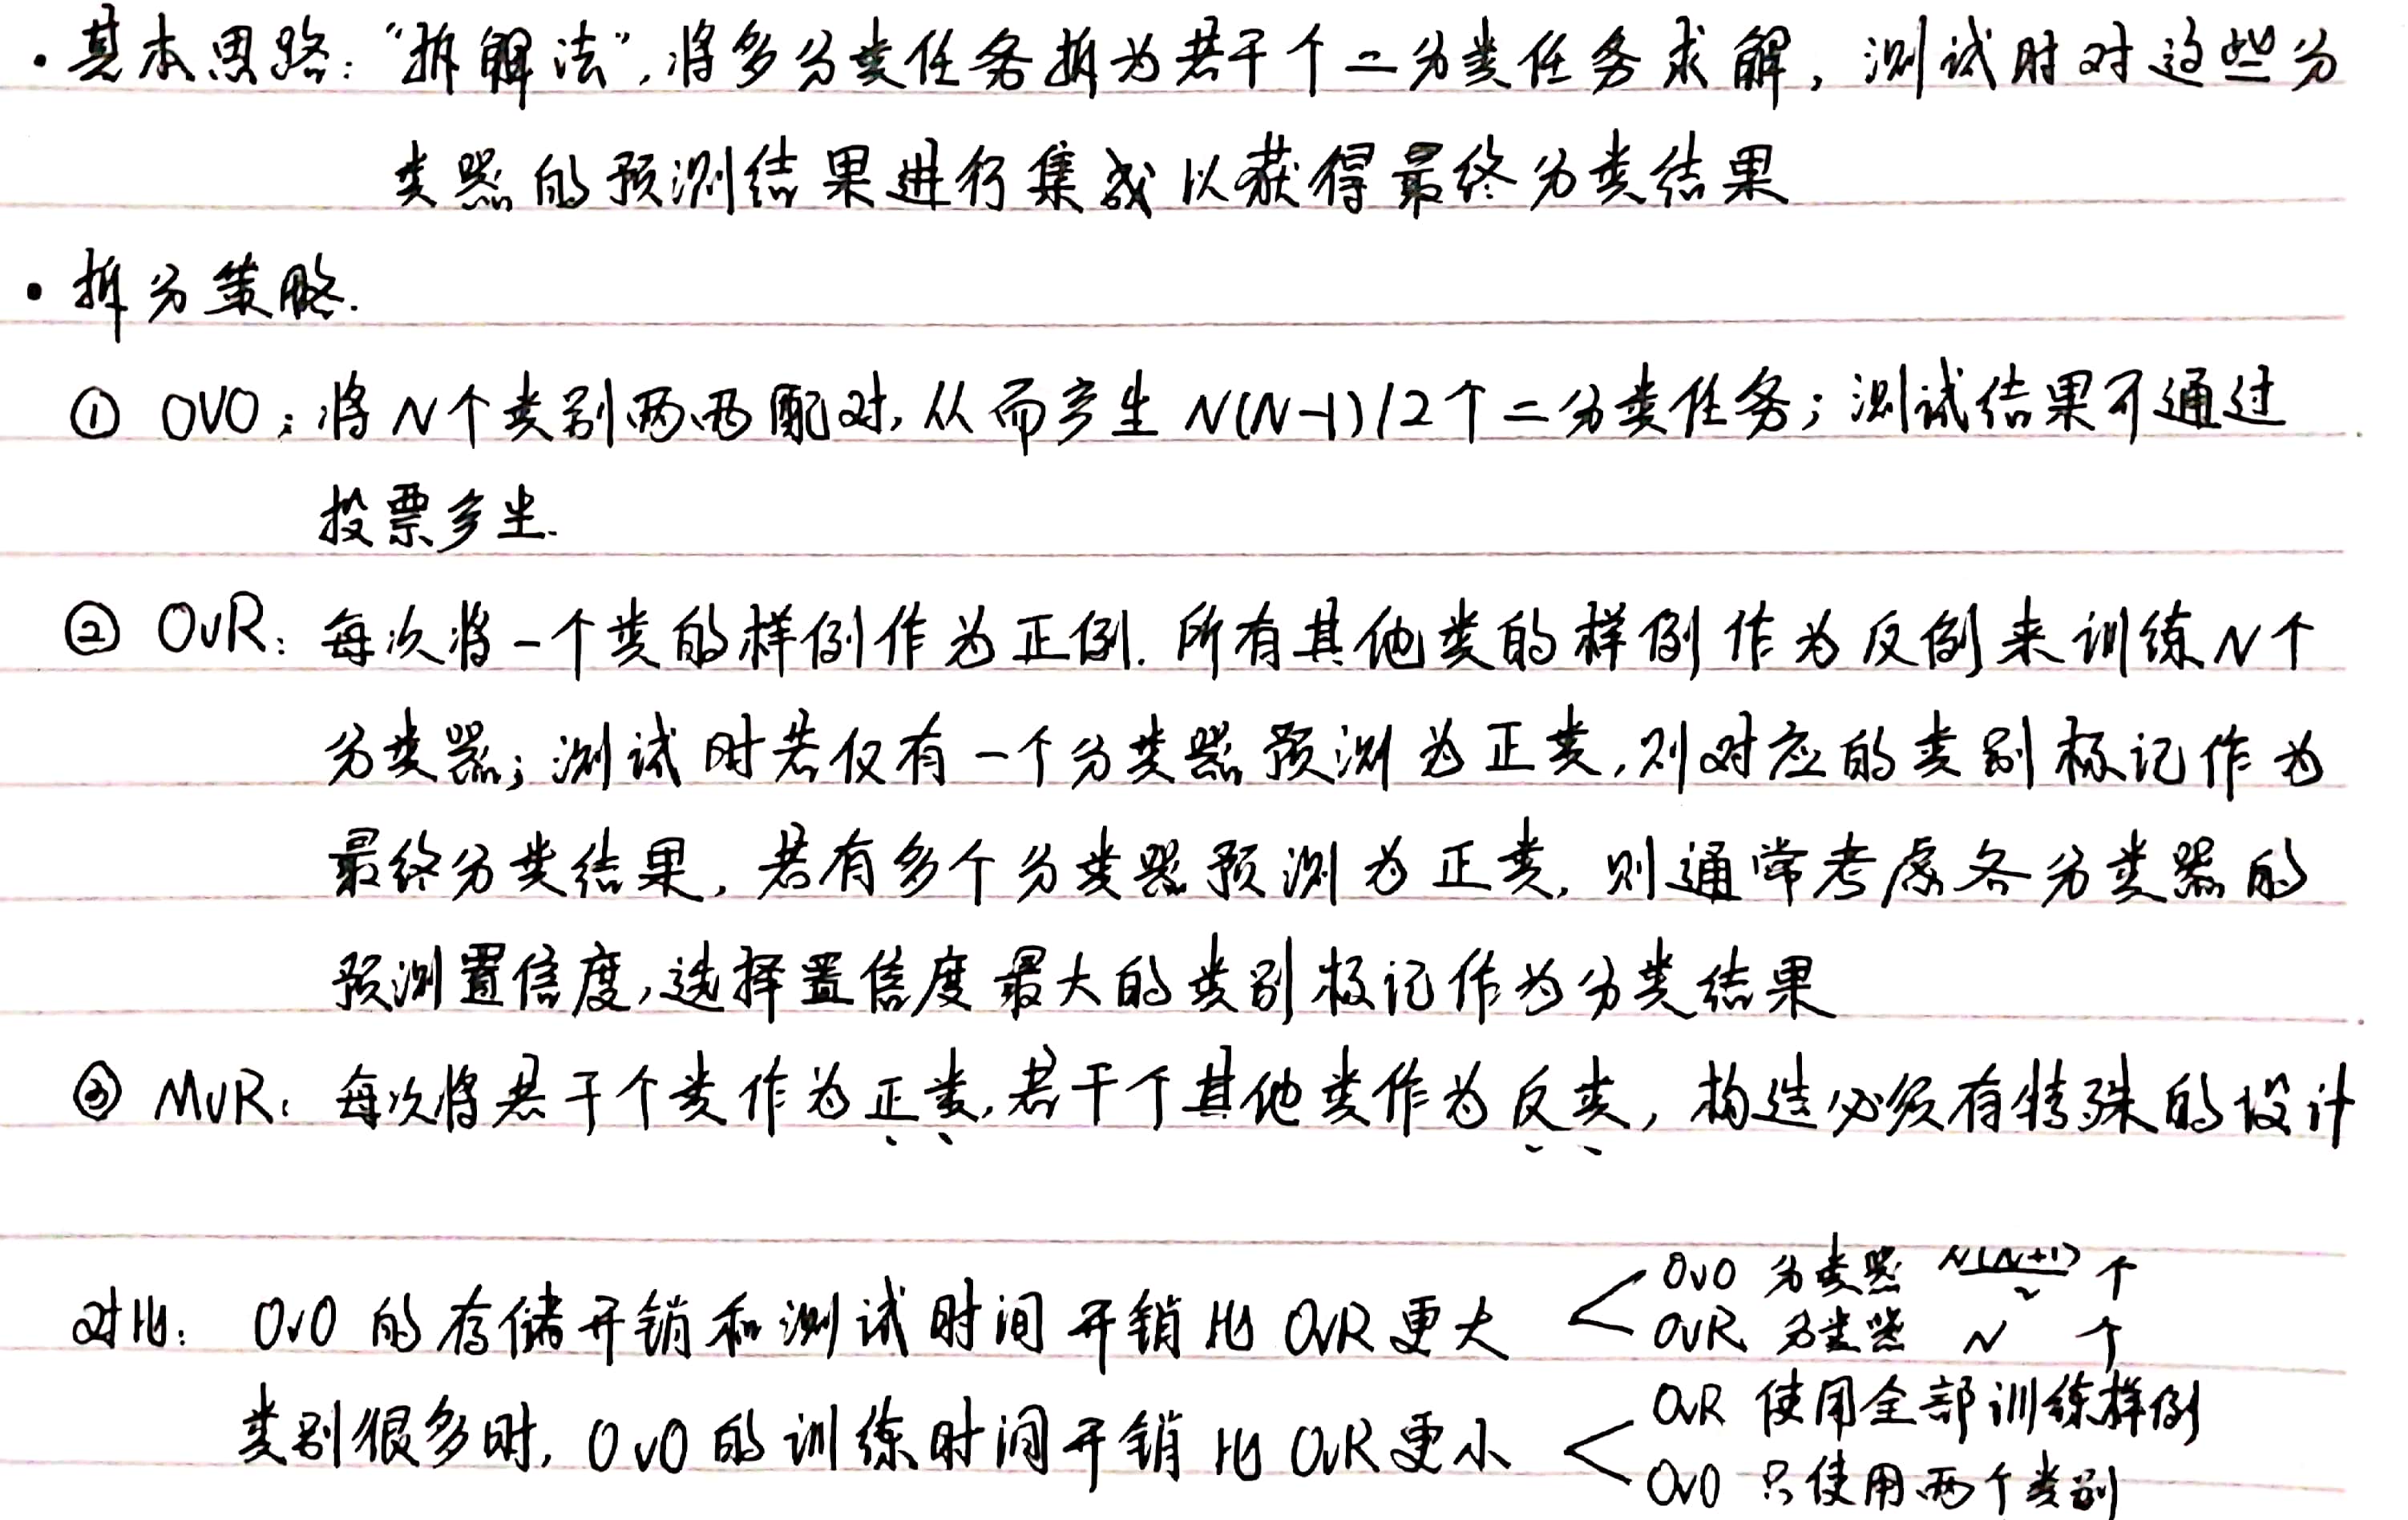 ·基本思路：“拆解法”，将多分类任务拆为若干个二分类任务求解，测试时对这些分
类器的预测结果进行集成以获得最终分类结果
·拆分策略.
① OVO：将N个类别两两配对，从而产生 N(N-1)/2个二分类任务；测试结果可通过
投票产生.
② OvR：每次将一个类的样例作为正例.所有其他类的样例作为反例来训练N个
分类器；测试时若仅有一个分类器预测为正类，则对应的类别标记作为
最终分类结果，若有多个分类器预测为正类，则通常考虑各分类器的
预测置信度，选择置信度最大的类别标记作为分类结果
③ MvR：每次将若干个类作为正类，若干个其他类作为反类，构造必须有特殊的设计
对比： OvO 的存储开销和测试时间开销比 OvR 更大
OvO 分类器 N(N+1)/2 个
OvR 分类器 N 个
类别很多时，OvO的训练时间开销比 OvR更小
OvR 使用全部训练样例
OvO 只使用两个类别